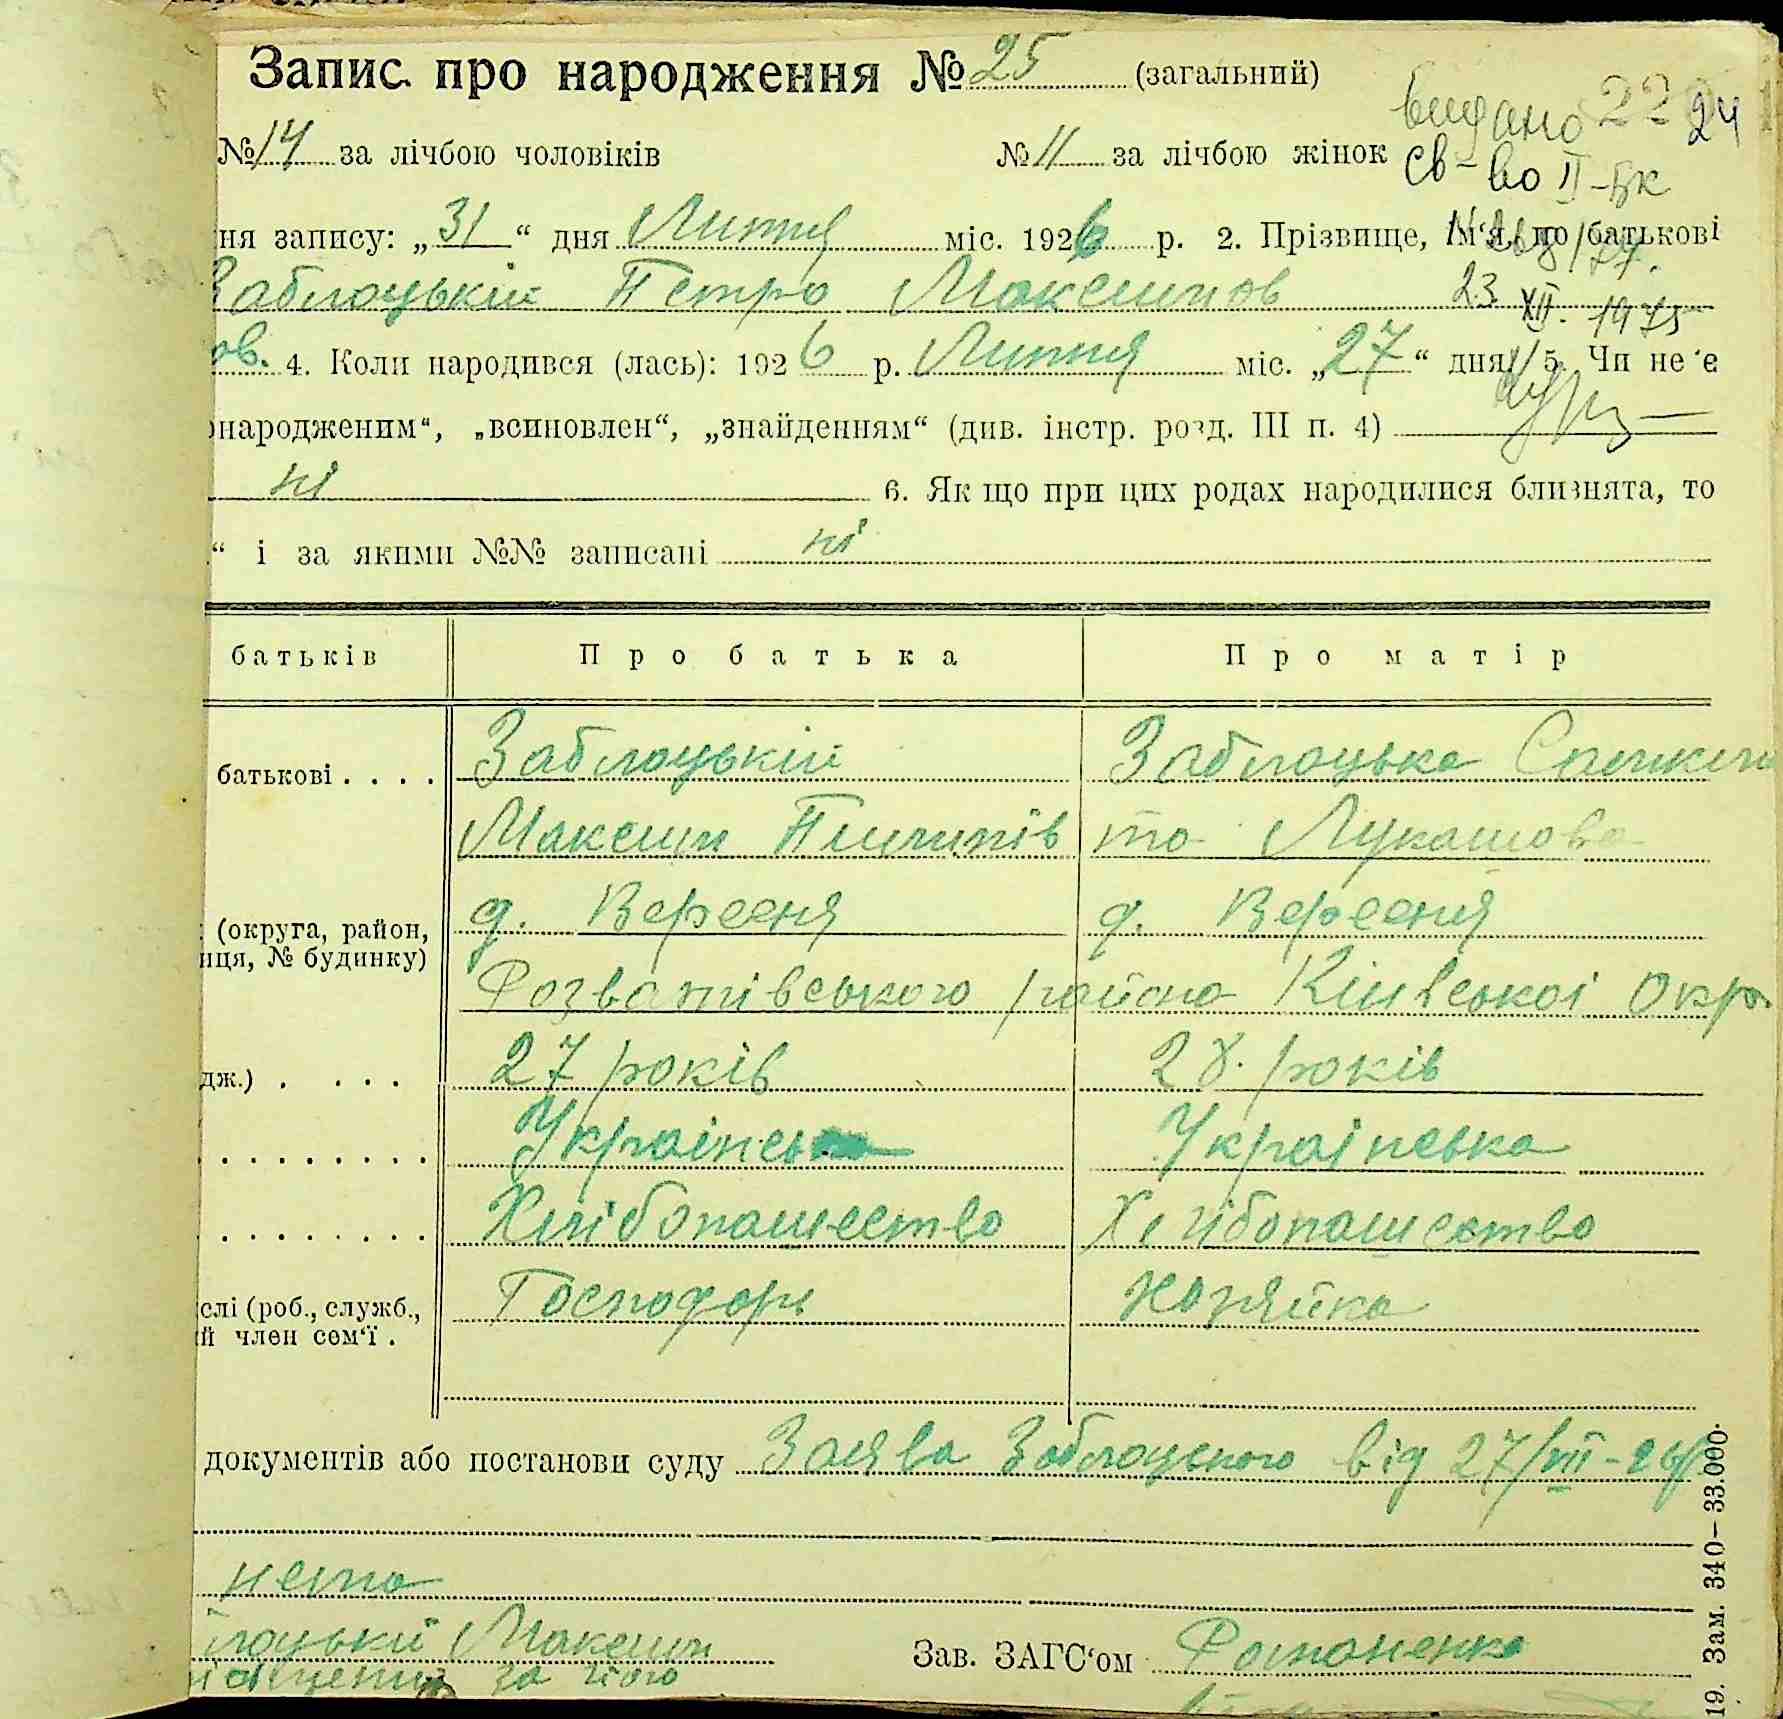 Запис про народження № 25 (загальний)
видано 22 24
№ 14 за лічбою чоловіків № 11 за лічбою жінок
св-во ІІ-БК
ня запису: „31“ дня Липня міс. 1926 р. 2. Прізвище, ім'я, по батькові
Заблоцький Петро Максимов
23 XII. 1975
ов. 4. Коли народився (лась): 1926 р. Липня міс. „27“ дня 5. Чи не є
онародженим“, „всиновлен“, „знайденням“ (див. інстр. розд. III п. 4)
ні 6. Як що при цих родах народилися близнята, то
“ і за якими №№ записані ні
батьків Про батька Про матір
батькові . . . . Заблоцький Заблоцька
Максим Пилипів та Лукашова
(округа, район, д. Вересня д. Вересня
иця, № будинку)
Розважівського района Київської Окр.
дж.) . . . . 27 років 28. років
Українська Українська
Хлібопашество Хлібопашество
слі (роб., служб., Господарь Хозяйка
ий член сем'ї .
документів або постанови суду Заява Заблоцького від 27/VII-26р
нема
лоцький Максим Зав. ЗАГС'ом Романенко
за його
19. Зам. 340–33.000.